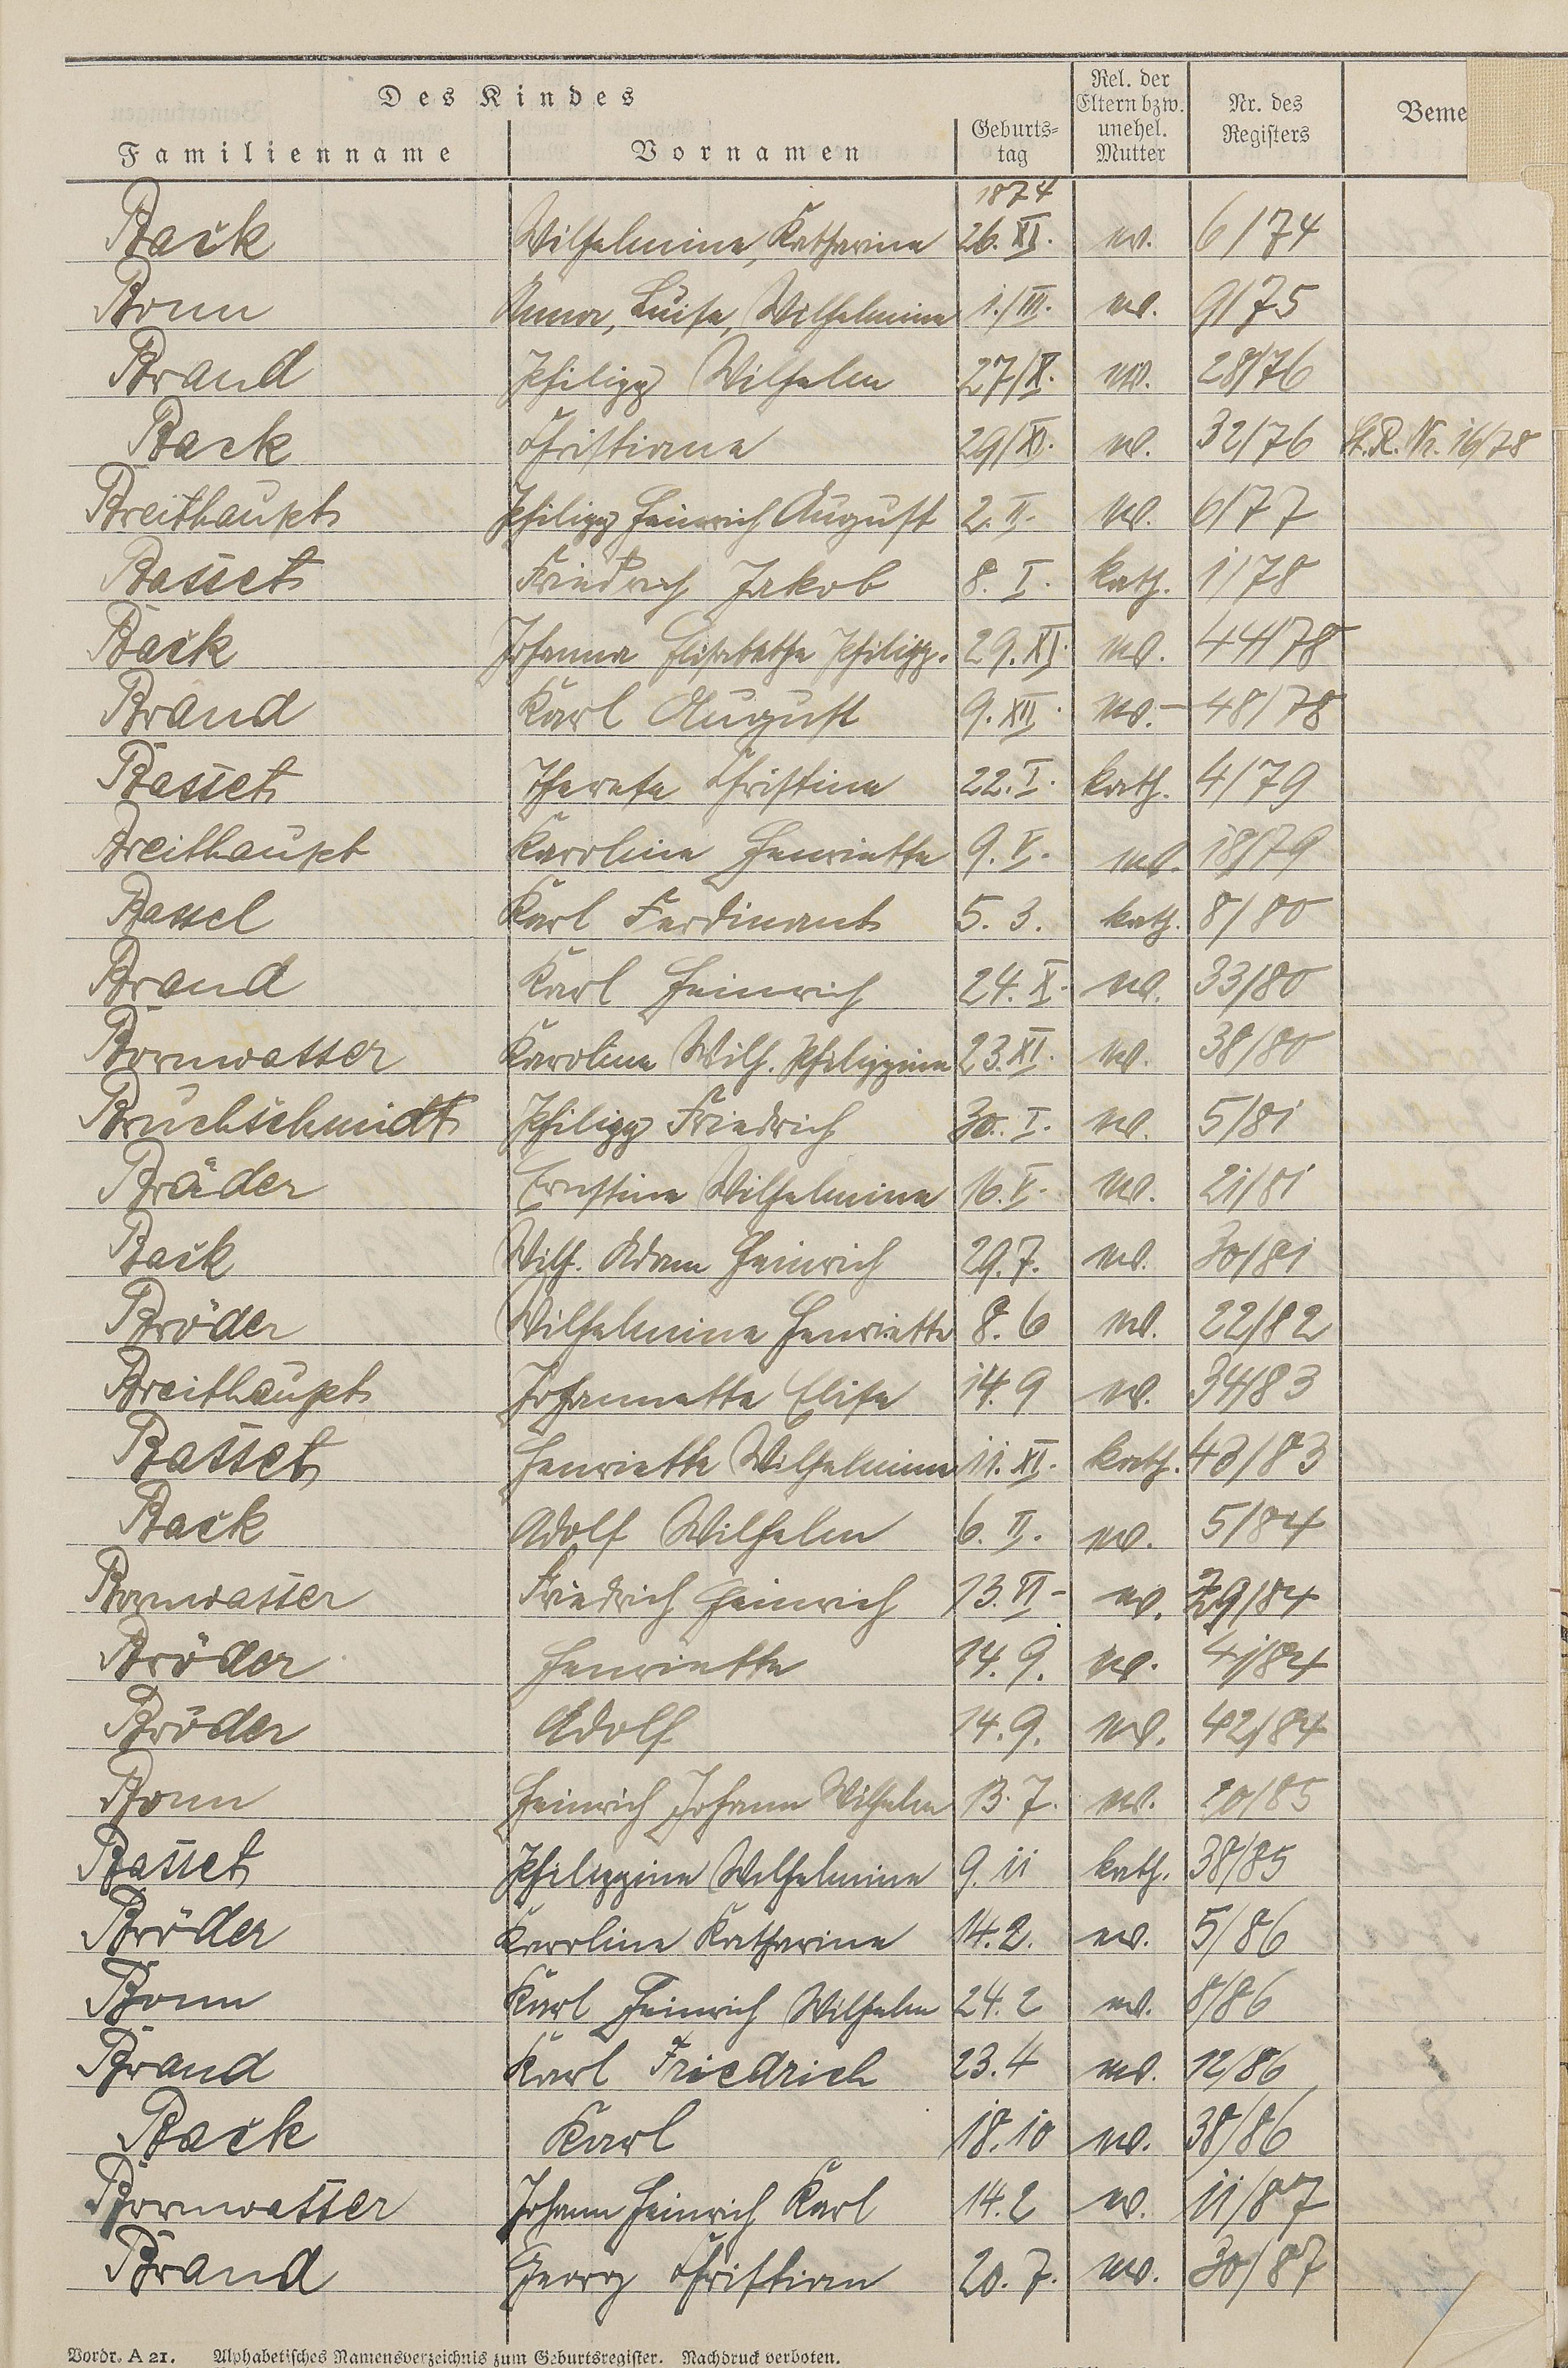 Des Kindes
Familienname Vornamen Geburts=tag Rel. der Eltern bzw. unehel. Mutter Nr. des Registers Beme
1874
Back Wilhelmine, Katharine 26. XI. ev. 6/74
Bonn Anna, Luise, Wilhelmine 1./III. ev. 9/75
Brand Philipp Wilhelm 27/X. ev. 28/76
Back Christiane 29/XI. ev. 32/76 St. R. Nr. 16/78
Breithaupt Philipp Heinrich August 2. II. ev. 6/77
Basset Friedrich Jakob 8. I. kath. 1/78
Back Johanna Elisabethe Philipp. 29. XI. ev. 44/78
Brand Karl August 9. XII. ev. 48/78
Basset Therese Christine 22. I. kath. 4/79
Breithaupt Karoline Henriette 9. V. ev. 18/79
Bassel Karl Ferdinant 5. 3. kath. 8/80
Brand Karl Heinrich 24. X. ev. 33/80
Bornwasser Karoline Wilh. Philippine 23. XI. ev. 38/80
Bruchschmidt Philipp Friedrich 30. I. ev. 5/81
Bräder Ernstine Wilhelmine 16. V. ev. 21/81
Back Wilh. Adam Heinrich 29. 7. ev. 30/81
Bröder Wilhelmine Henriette 8. 6 ev. 22/82
Breithaupt Johannette Elise 14. 9 ev. 34/83
Basset Henriette Wilhelmine 11. XI. kath. 43/83
Back Adolf Wilhelm 6. II. ev. 5/84
Bornwasser Friedrich Heinrich 13. VI ev. 29/84
Bröder Henriette 14. 9. ev. 41/84
Bröder Adolf 14. 9. ev. 42/84
Bonn Heinrich Johann Wilhelm 13. 7. ev. 20/85
Basset Philippine Wilhelmine 9. 11 kath. 38/85
Bröder Karoline Katharine 14. 2. ev. 5/86
Bonn Karl Heinrich Wilhelm 24. 2 ev. 8/86
Brand Karl Friedrich 23. 4 ev. 12/86
Back Karl 18. 10 ev. 38/86
Bornwasser Johann Heinrich Karl 14. 2 ev. 11/87
Brand Georg Christian 20. 7. ev. 30/87
Vordr. A 21. Alphabetisches Namensverzeichnis zum Geburtsregister. Nachdruck verboten.